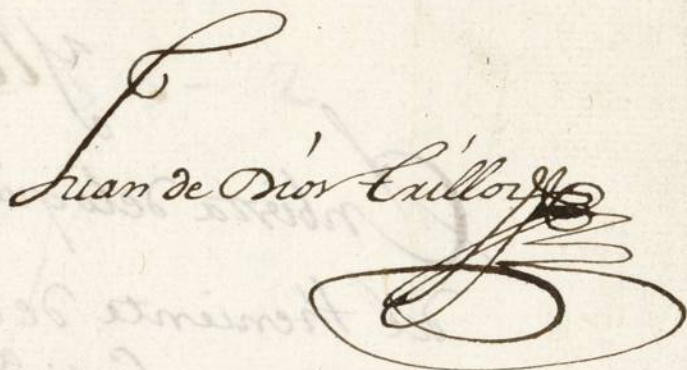 Juan de Dios Trillo